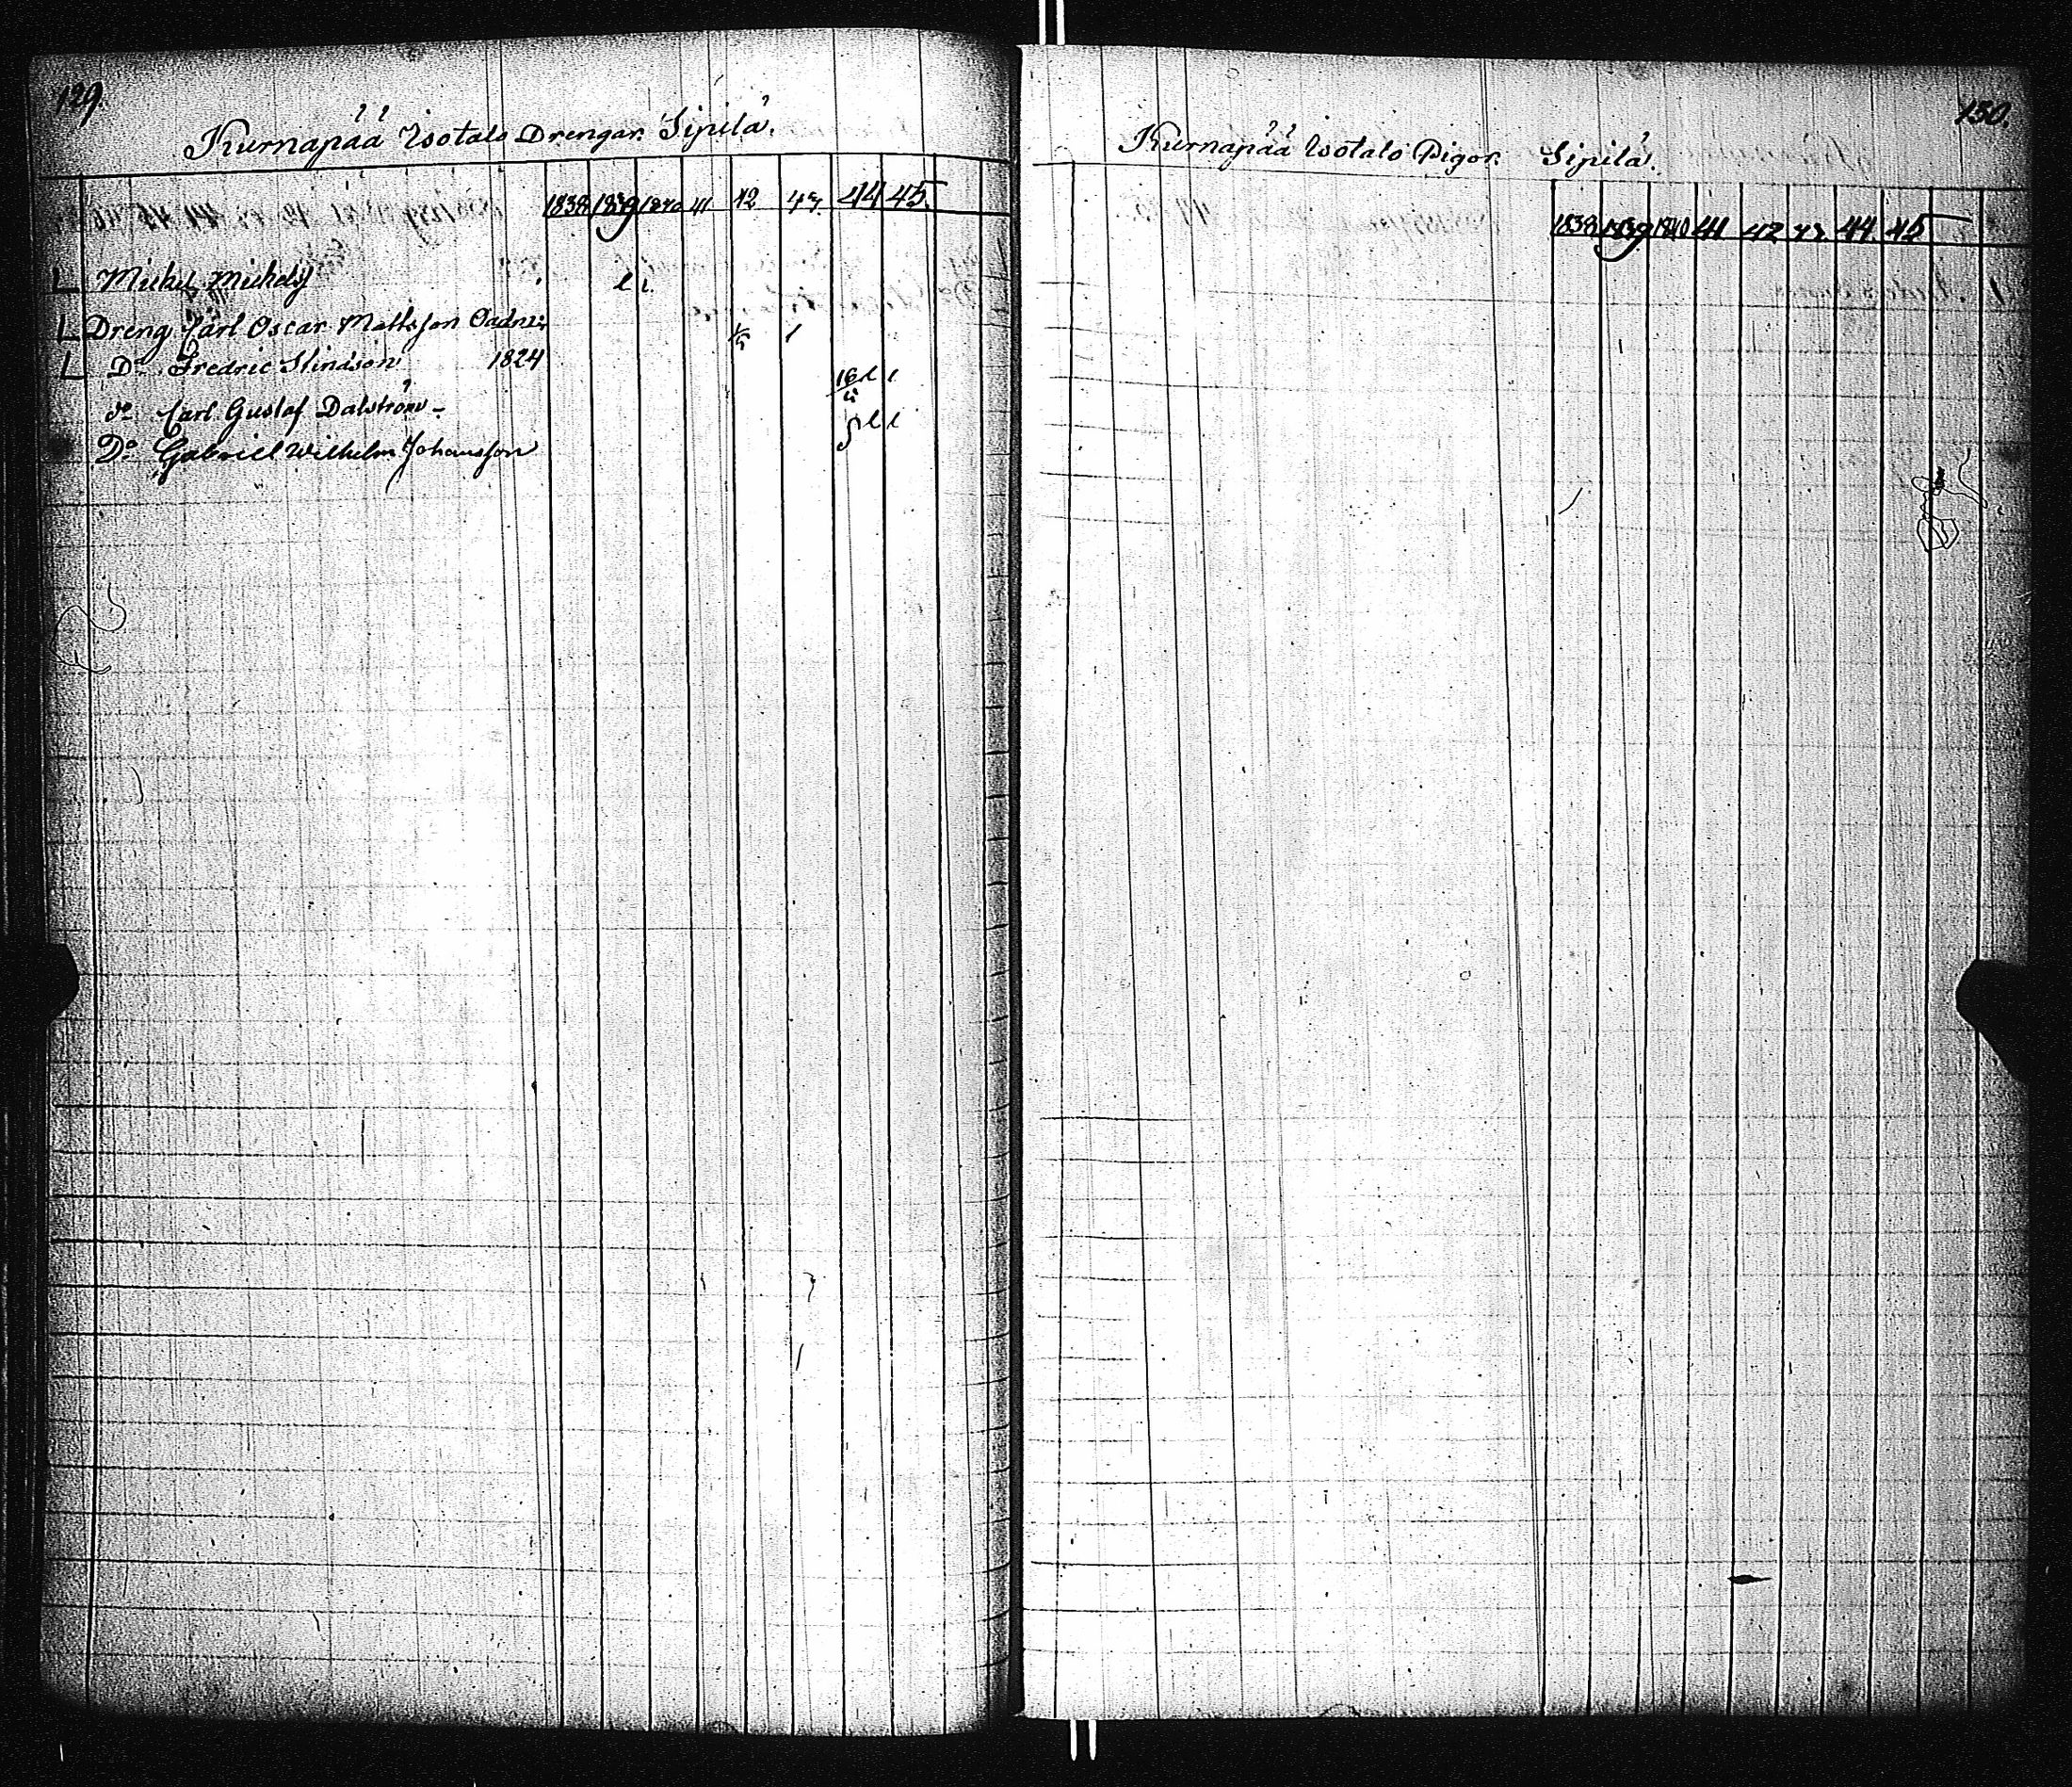 129.
Kurnapää Isotalo Drengar. Sipilä.
1838 1839 1840 41 42 43. 44 45.
L Michel Michelsf
L Dreng Carl Oscar Mattsson
L Do Fredric Stindson 1824
do Carl Gustaf Dalström
Do Gabriel Wilhelm Johansson
16
150.
Kurnapää Isotalo Pigor. Sipilä.
1838 1839 1840 41 42 43. 44. 45